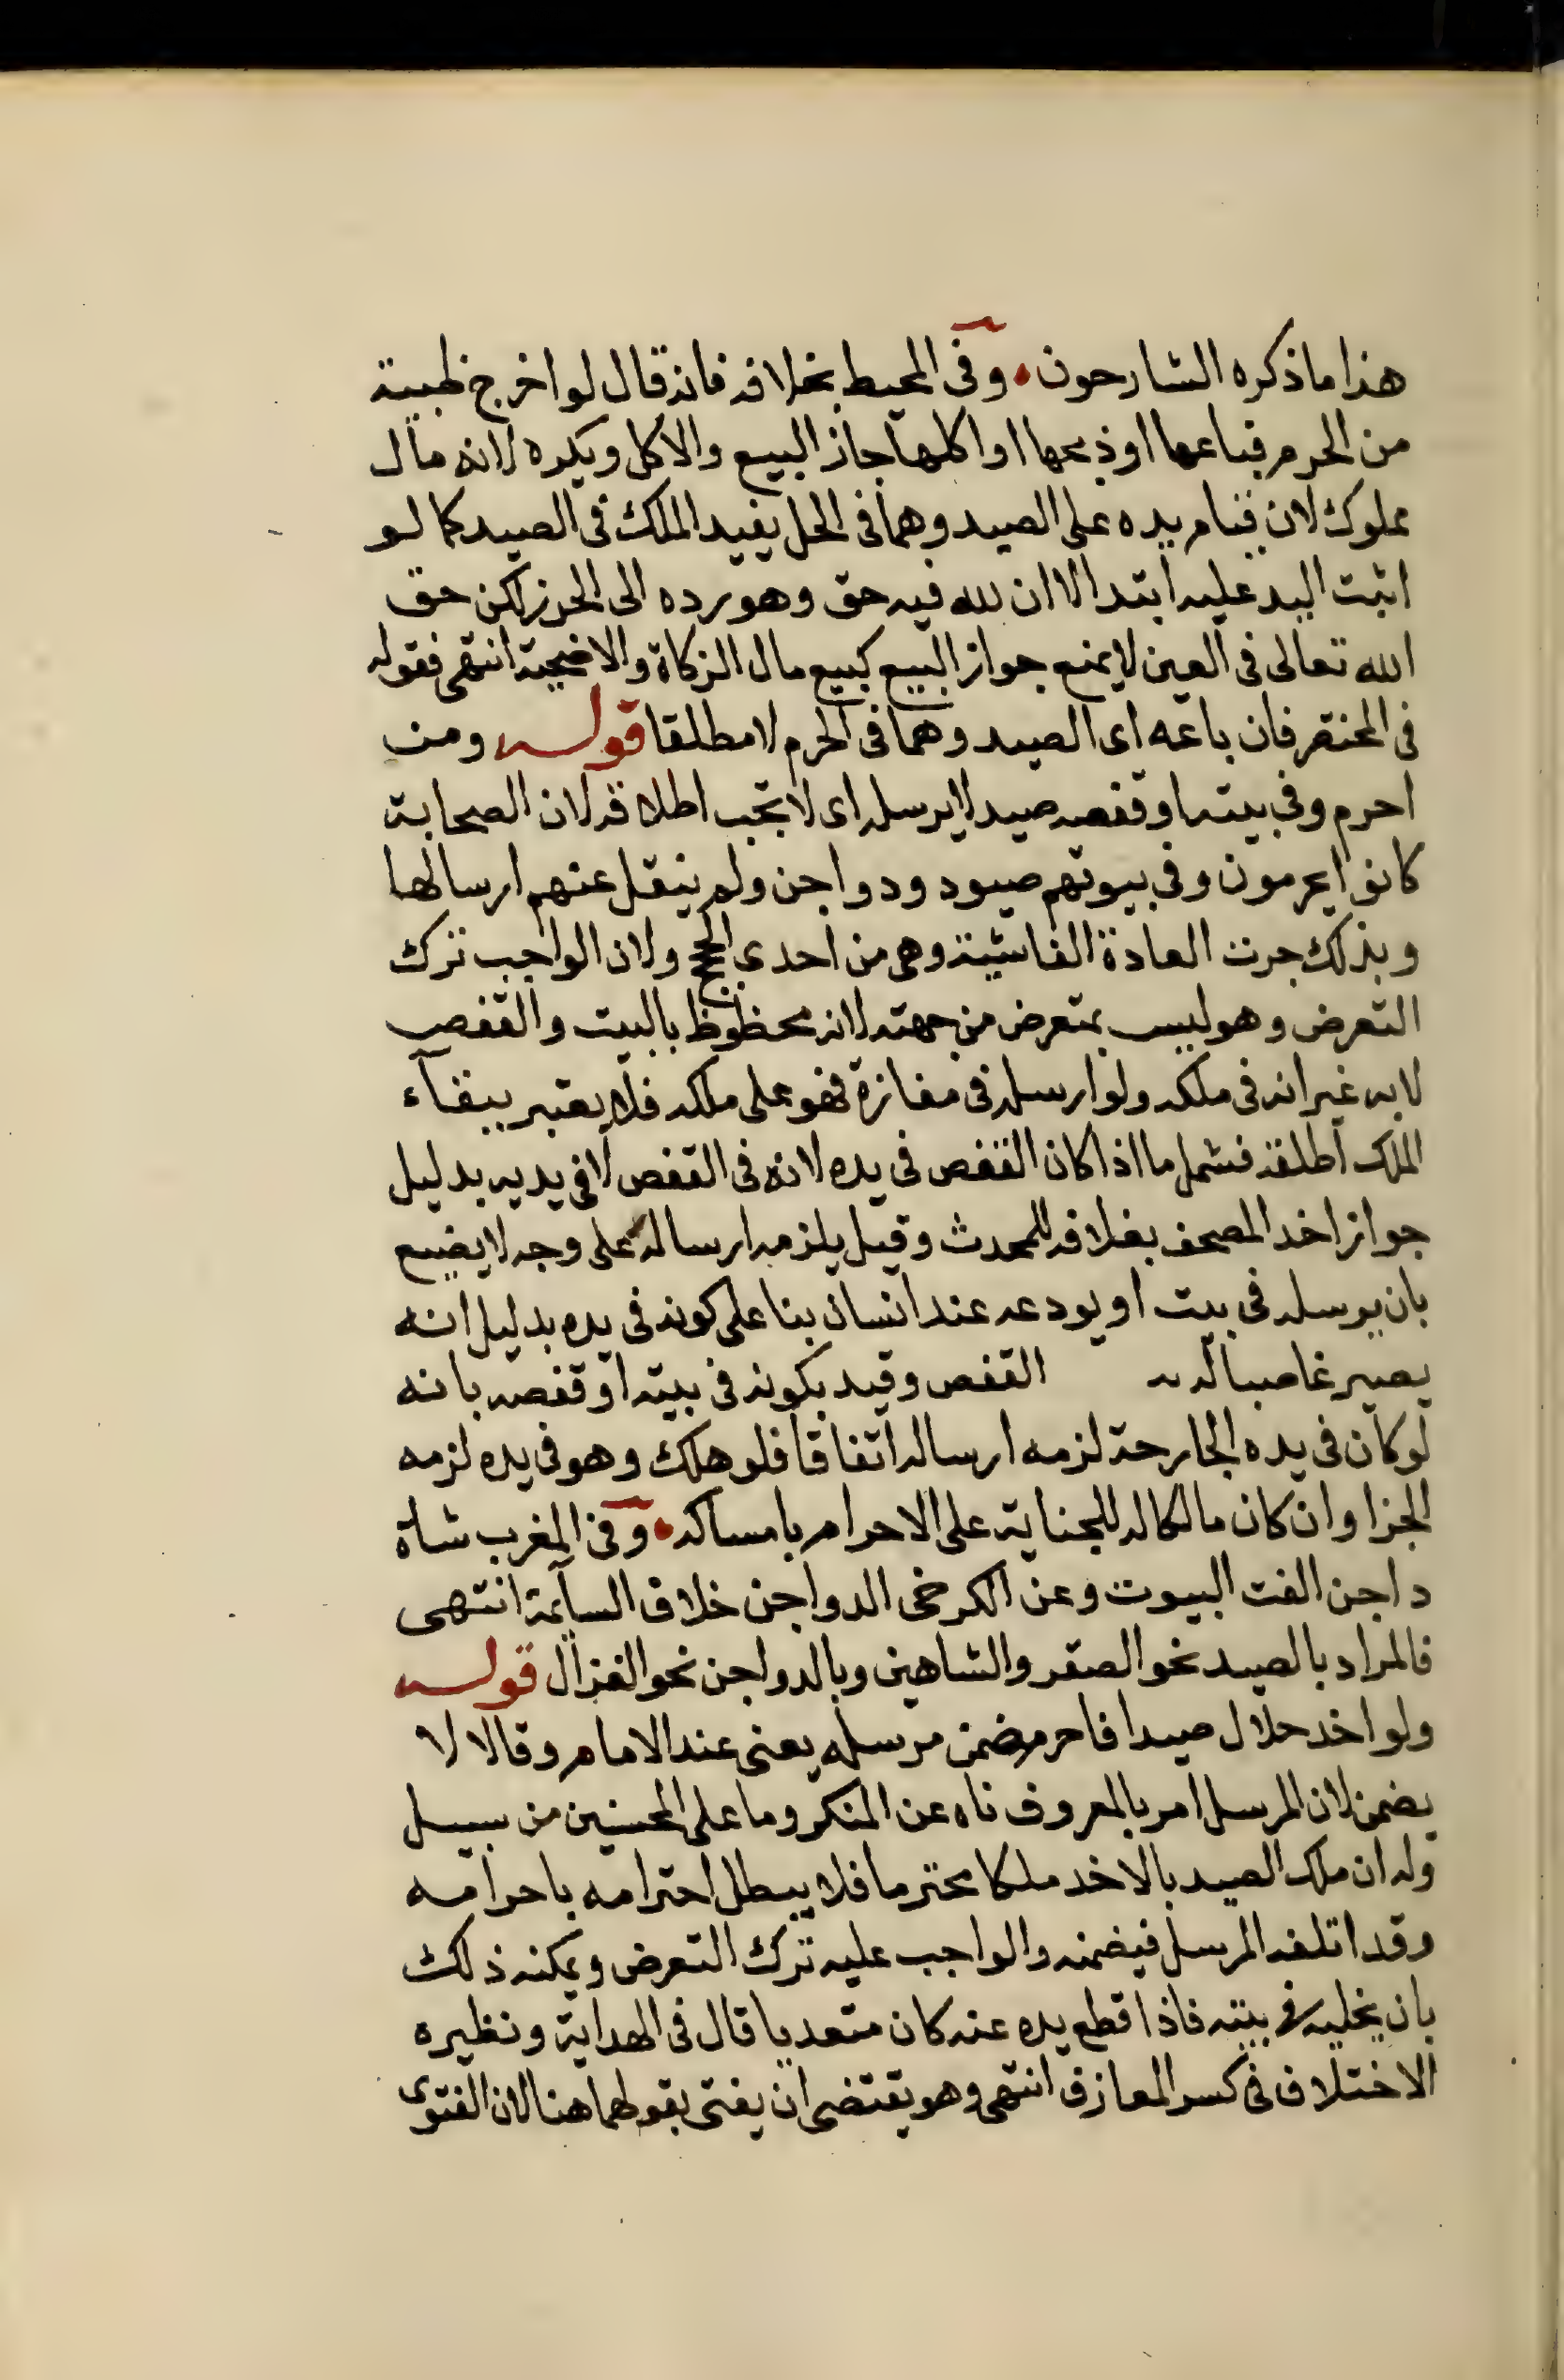 هذا ما ذكره الشارحون وفى المحيط بخلافه فانه قال لو اخرج ظبية
من الحرم فباعها او ذبحها او اكلها جاز البيع والاكل ويكره لانه مال
مملوك لان قيام يده على الصيد وهما فى الحل يفيد الملك فى الصيد كما لو
اثبت اليد عليه ابتدا الا ان لله فيه حق وهو رده الى الحرز لكن حق
الله تعالى فى العين لا يمنع جواز البيع كبيع مال الزكاة والاضحية انتهى فقوله
فى المختصر فان باعه اى الصيد وهما فى الحرم لا مطلقا قوله ومن
احرم وفى بيته او قفصه صيد لا يرسله اى لا تجب اطلاقه لان الصحابة
كانوا يحرمون وفى بيوتهم صيود ودواجن ولم ينقل عنهم ارسالها
وبذلك جرت العادة الفاشية وهى من احدى الحجج ولان الواجب ترك
التعرض وهو ليس بمتعرض من جهته لانه محظوظ بالبيت والقفص
لا به غير انه فى ملكه ولو ارسله فى مفازة فهو على ملكه فلا يعتبر ببقآء
الملك اطلقه فشمل ما اذا كان القفص فى يده لانه فى القفص لا فى يديه بدليل
جواز اخد المصحف بغلافه للمحدث وقيل يلزمه ارساله على وجه لا يضيع
بان يرسله فى بيت او يودعه عند انسان بنا على كونه فى يده بدليل انه
يصير غاصبا له القفص وقيد بكونه فى بيته او قفصه بانه
لو كان فى يده الجارحة لزمه ارساله اتفاقا فلو هلك وهو فى يده لزمه
الجزا وان كان مالكا له للجناية على الاحرام بامساكه وفى المغرب شاة
داجن الفت البيوت وعن الكرخى الدواجن خلاف السآيمة انتهى
فالمراد بالصيد نحو الصقر والشاهين وبالدواجن نحو الغزال قوله
ولو اخد حلال صيدا فاحرم ضمن مرسله يعنى عند الامام وقالا لا
يضمن لان المرسل امر بالمعروف ناه عن المنكر وما على المحسنين من سبيل
وله ان ملك الصيد بالاخد ملكا محترما فلا يبطل احترامه باحرامه
وقد اتلفه المرسل فيضمنه والواجب عليه ترك التعرض ويمكنه ذلك
بان يخليه فى بيته فاذا قطع يده عنه كان متعديا قال فى الهداية ونظيره
الاختلاف فى كسر المعازف انتهى وهو يقتضى ان يفتى بقولهما هنا لان الفتوى